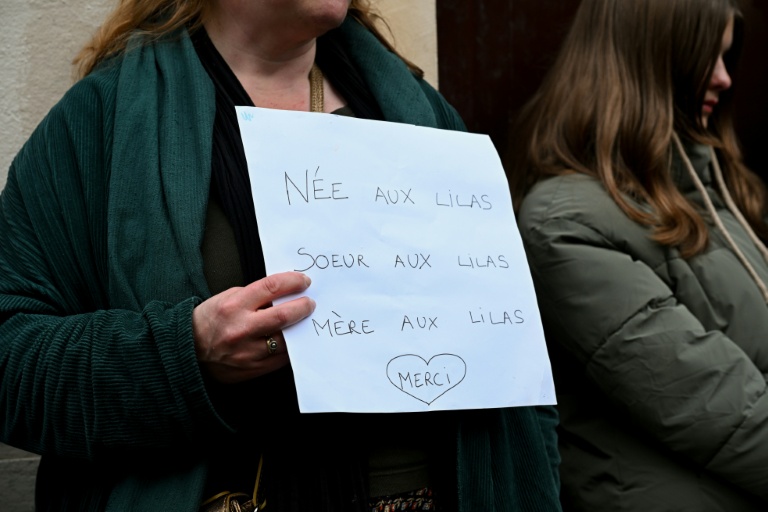 NÉE AUX LILAS
SOEUR AUX LILAS
MÈRE AUX LILAS
MERCI